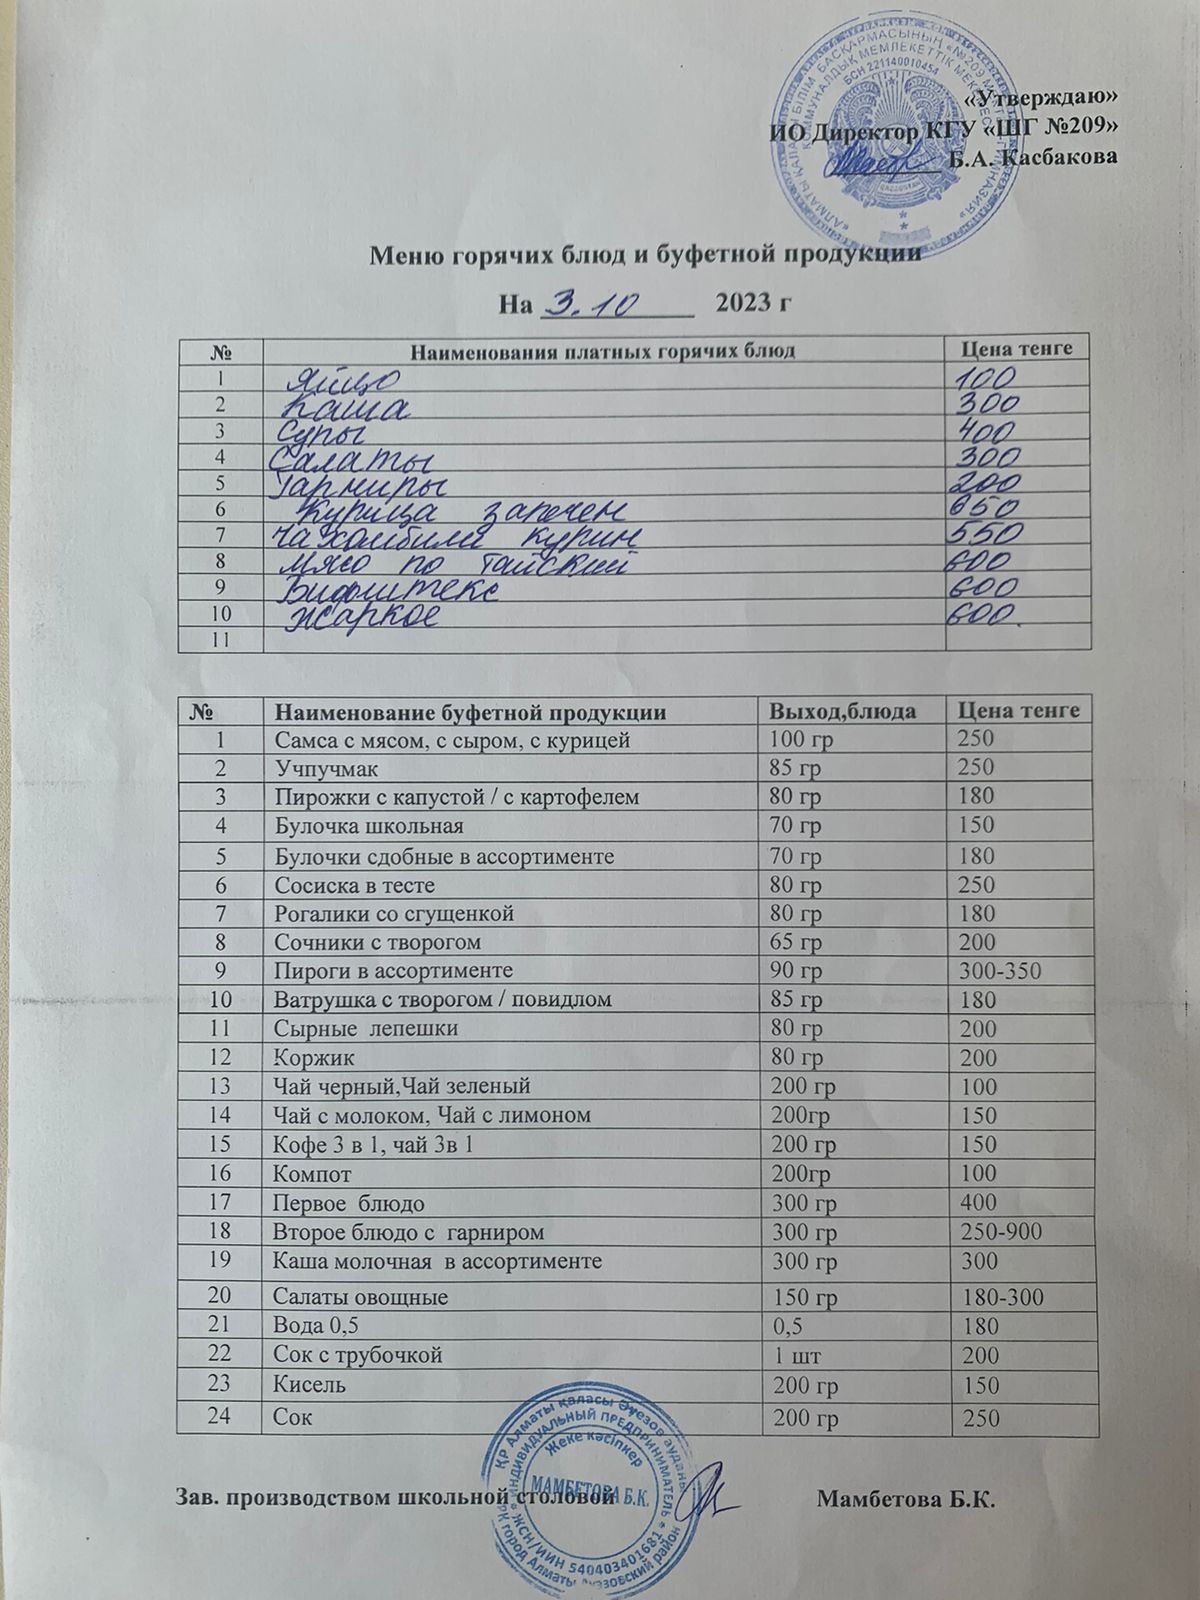 «АЛМАТЫ ҚАЛАСЫ БІЛІМ БАСҚАРМАСЫНЫҢ «№209 МЕКТЕП-ГИМНАЗИЯ»
КОММУНАЛДЫҚ МЕМЛЕКЕТТІК МЕКЕМЕСІ
БСН 221140010454
«Утверждаю»
ИО Директор КГУ «ШГ №209»
Б.А. Касбакова
Меню горячих блюд и буфетной продукции
На 3.10 2023 г
№ Наименования платных горячих блюд Цена тенге
1 Яйцо 100
2 Каша 300
3 Супы 400
4 Салаты 300
5 Гарниры 200
6 Курица запечен 650
7 Чахомбили курин 550
8 Мясо по Тайский 600
9 Бифштекс 600
10 Жаркое 600.
11
№ Наименование буфетной продукции Выход,блюда Цена тенге
1 Самса с мясом, с сыром, с курицей 100 гр 250
2 Учпучмак 85 гр 250
3 Пирожки с капустой / с картофелем 80 гр 180
4 Булочка школьная 70 гр 150
5 Булочки сдобные в ассортименте 70 гр 180
6 Сосиска в тесте 80 гр 250
7 Рогалики со сгущенкой 80 гр 180
8 Сочники с творогом 65 гр 200
9 Пироги в ассортименте 90 гр 300-350
10 Ватрушка с творогом / повидлом 85 гр 180
11 Сырные лепешки 80 гр 200
12 Коржик 80 гр 200
13 Чай черный,Чай зеленый 200 гр 100
14 Чай с молоком, Чай с лимоном 200гр 150
15 Кофе 3 в 1, чай 3в 1 200 гр 150
16 Компот 200гр 100
17 Первое блюдо 300 гр 400
18 Второе блюдо с гарниром 300 гр 250-900
19 Каша молочная в ассортименте 300 гр 300
20 Салаты овощные 150 гр 180-300
21 Вода 0,5 0,5 180
22 Сок с трубочкой 1 шт 200
23 Кисель 200 гр 150
24 Сок 200 гр 250
Зав. производством школьной столовой Мамбетова Б.К.
ҚР Алматы қаласы Әуезов ауданы
ИНДИВИДУАЛЬНЫЙ ПРЕДПРИНИМАТЕЛЬ
Жеке кәсіпкер
МАМБЕТОВА Б.К.
ЖСН/ИИН 540403401681
РК город Алматы Ауэзовский район